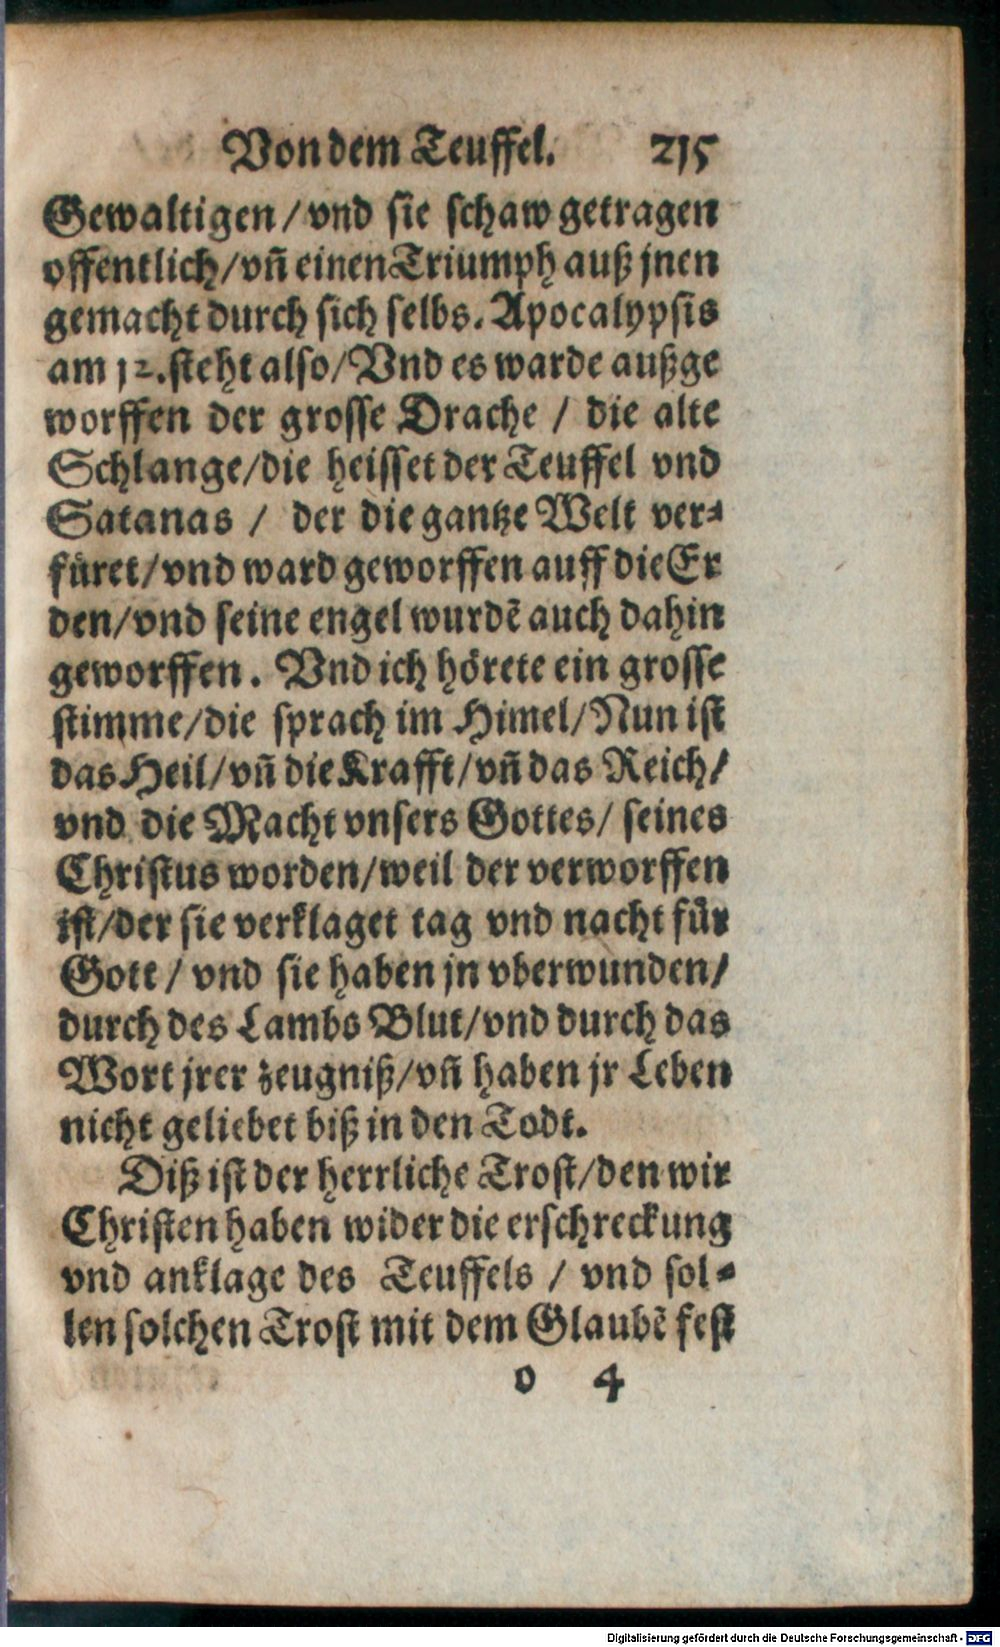 Von dem Teuffel. 215
Gewaltigen/vnd sie schaw getragen
offentlich/vñ einen Triumph auß jnen
gemacht durch sich selbs. Apocalypsis
am 12. steht also/Vnd es warde außge
worffen der grosse Drache / die alte
Schlange/die heisset der Teuffel vnd
Satanas / der die gantze Welt ver-
füret/vnd ward geworffen auff die Er
den/vnd seine engel wurdẽ auch dahin
geworffen. Vnd ich hörete ein grosse
stimme/die sprach im Himel/Nun ist
das Heil/vñ die Krafft/vñ das Reich/
vnd die Macht vnsers Gottes/ seines
Christus worden/weil der verworffen
ist/der sie verklaget tag vnd nacht für
Gott / vnd sie haben jn vberwunden/
durch des Lambs Blut/vnd durch das
Wort jrer zeugniß/vñ haben jr Leben
nicht geliebet biß in den Todt.
Diß ist der herrliche Trost/den wir
Christen haben wider die erschreckung
vnd anklage des Teuffels / vnd sol-
len solchen Trost mit dem Glaubẽ fest
o 4
Digitalisierung gefördert durch die Deutsche Forschungsgemeinschaft - DFG